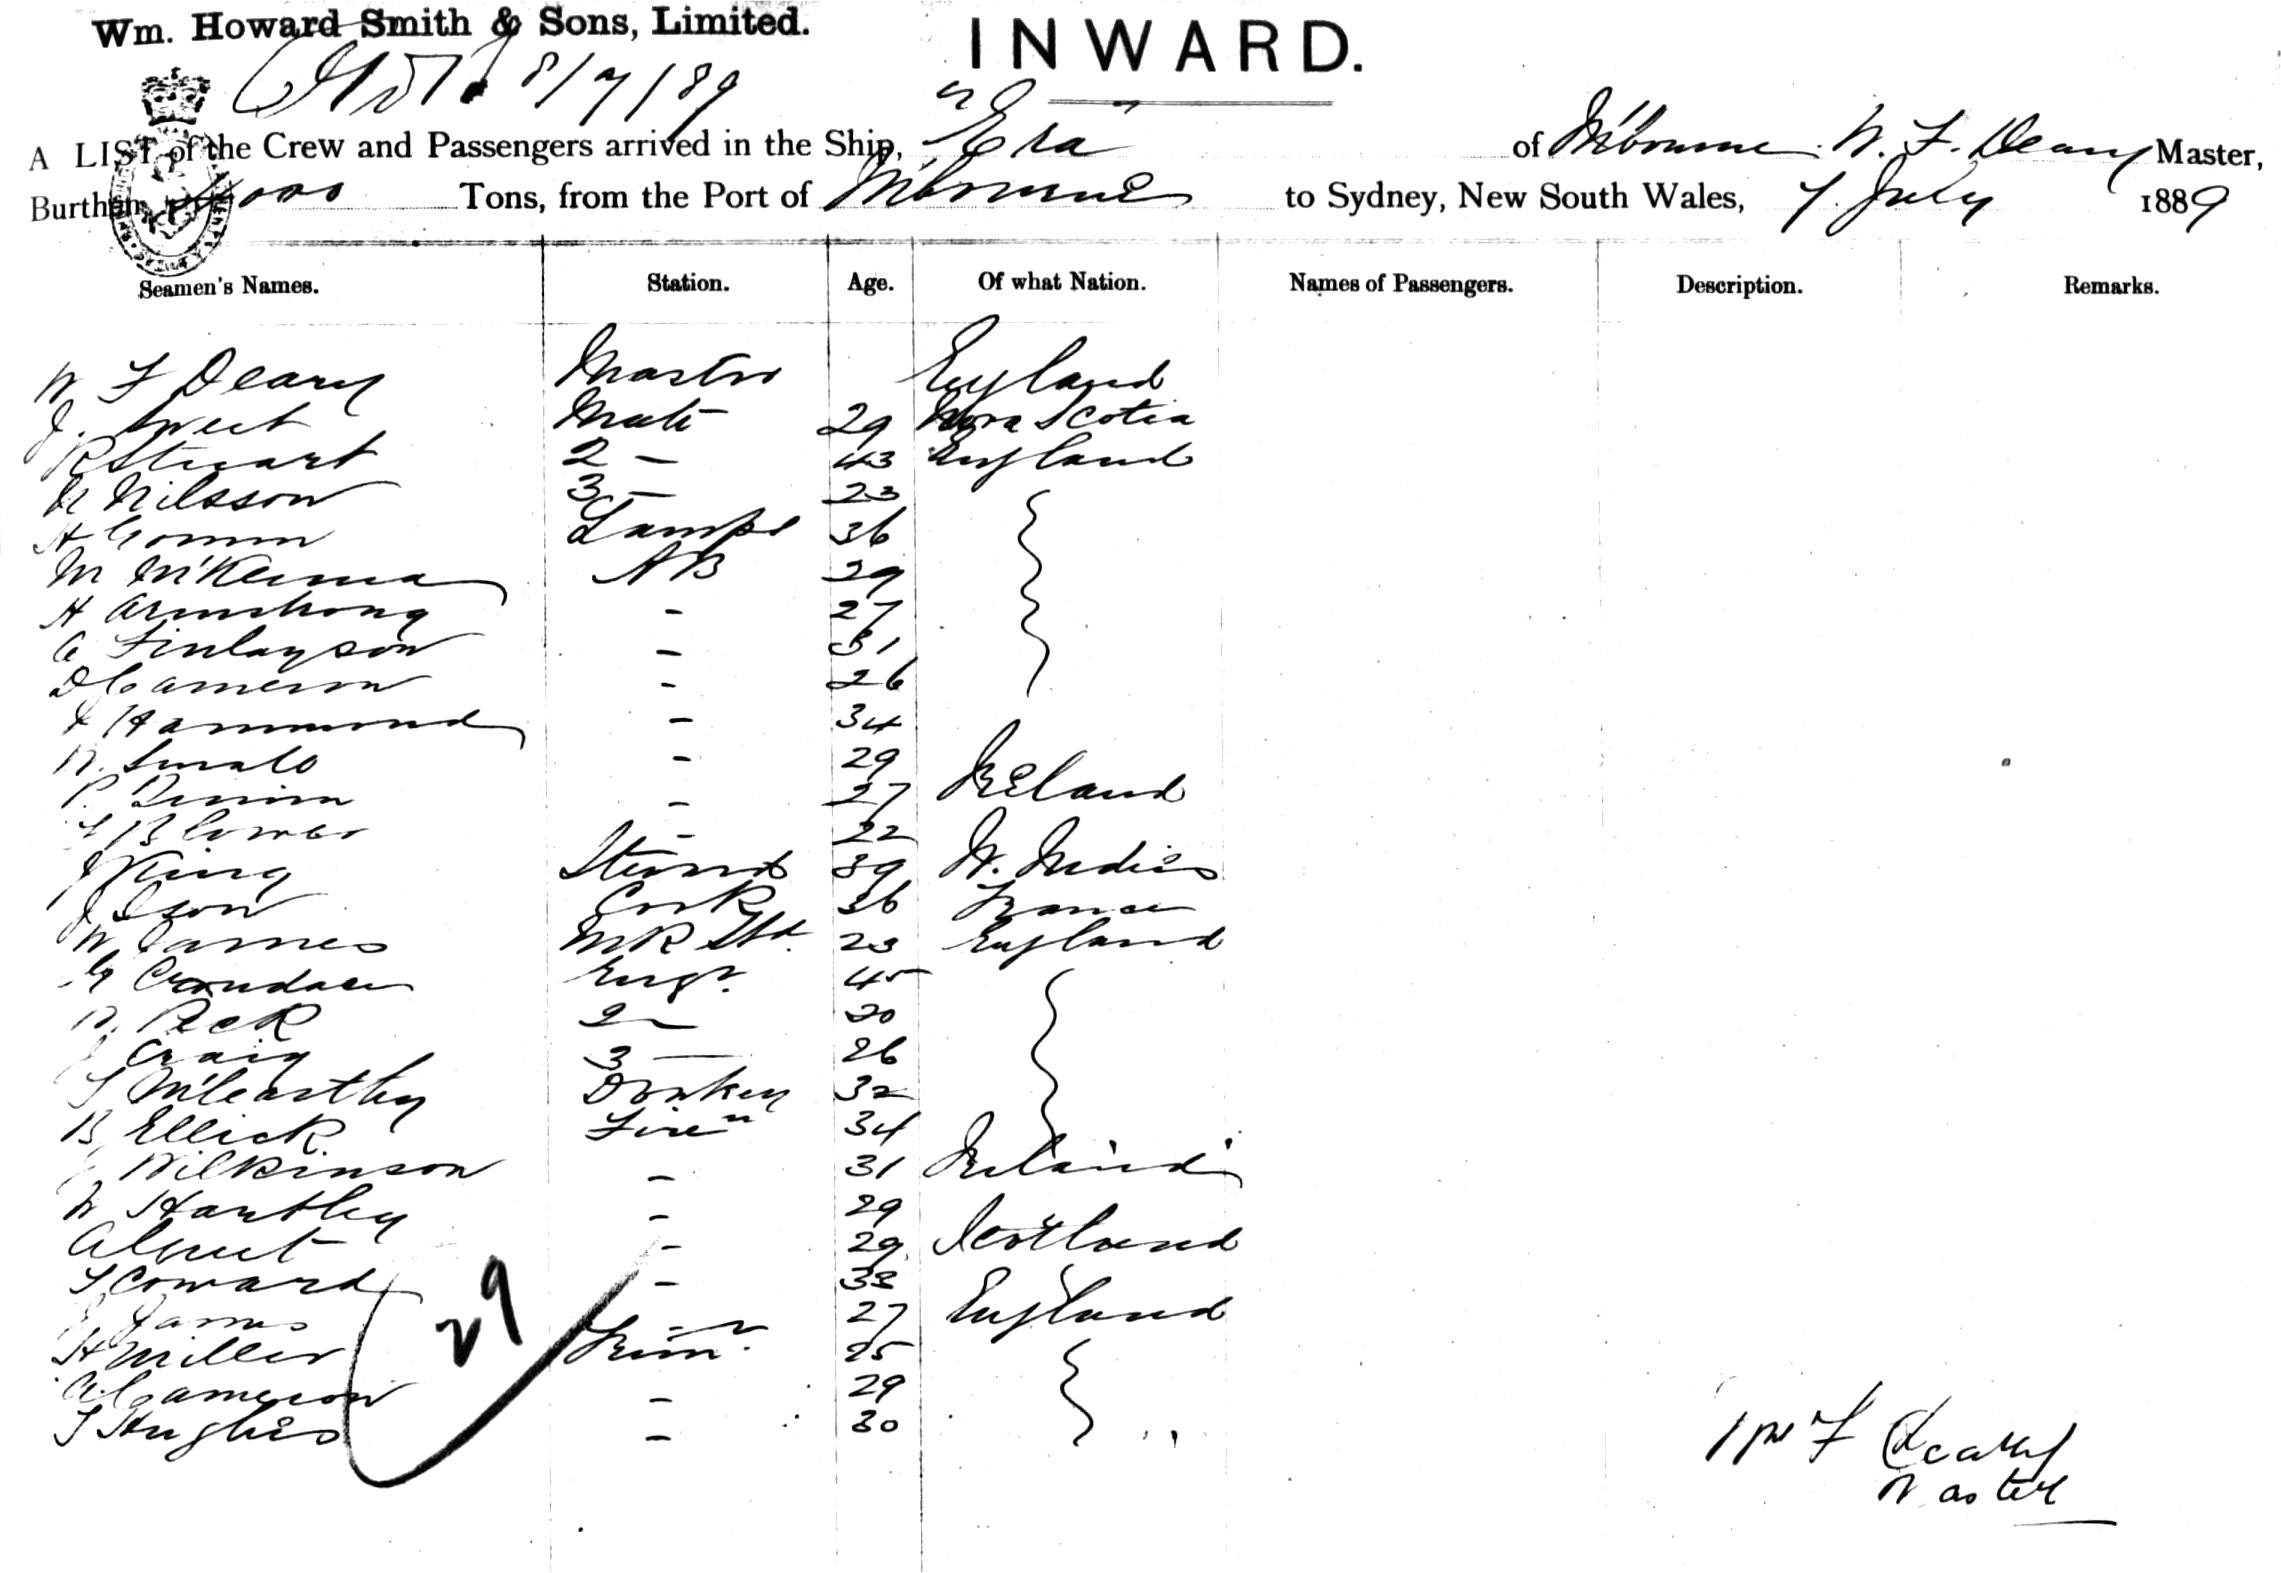 Wm. Howard Smith & Sons, Limited.
INWARD.
8/7/89
A LIST of the Crew and Passengers arrived in the Ship, "Era of M'bourne W. F. Deary Master,
Burthen Tons, from the Port of M'bourne to Sydney, New South Wales, 7 July 1889
Seamen's Names. Station. Age. Of what Nation. Names of Passengers. Description. Remarks.
W F Deary Master England
J. Mate 29 Nova Scotia
R Stewart 2 — 43 England
N Nilsson 3 — 23
A Lamps 36
M M'Kenna AB 29
A Armstrong - 27
A Finlayson - 31
D Cameron - 26
J Hammond - 34
W. - 29
P. - 27 Ireland
- 22
J King Steward 39 W. Indies
J Cook 36 France
W James MR Std. 23 England
G Engr. 45
W. Peck 2 — 30
J Craig 3 — 26
T M'Carthy Donkey 32
B Ellick Firen 34
J Wilkinson - 31 Ireland
W Hartley - 29
- 29 Scotland
T Coward - 33
J James - 27 England
H Miller Trimr. 25
A Cameron - 29
T Hughes - 30
29
W F Deary
Master